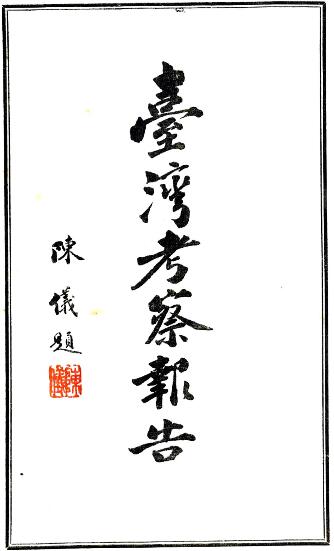 臺灣考察報告
陳儀題
陳儀